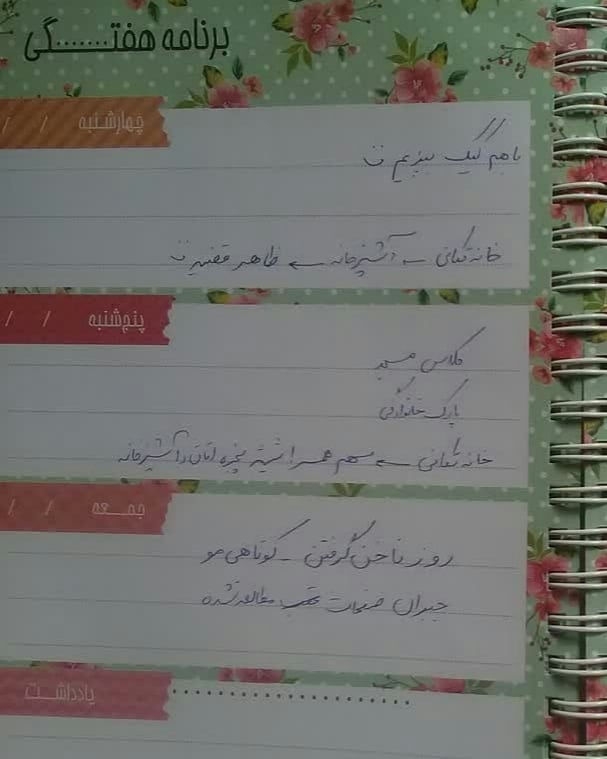 برنامه هفتگی
چهارشنبه / /
باهم کیک بپزیم
خانه تکانی ← آشپزخانه ← ظاهر قضیه
پنجشنبه / /
کلاس مسجد
پارک خانوادگی
خانه تکانی ← سهم همسر: شیشه پنجره اتاق و آشپزخانه
جمعه / /
روز ناخن گرفتن - کوتاهی مو
جبران صفحات عقب مطالعه نشده
یادداشت